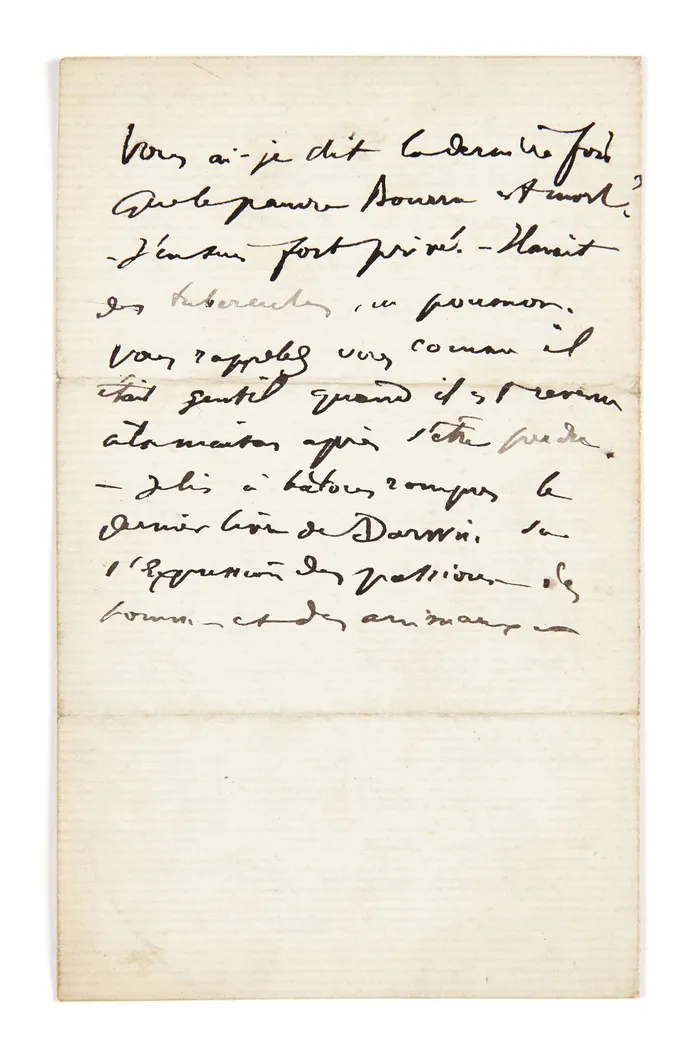 Vous ai-je dit la dernière fois
que le pauvre Bourra est mort?
- J'en suis fort privé. - Il avait
des tubercules au poumon.
Vous rappelez vous comme il
était gentil quand il est revenu
à la maison après s'être perdu.
- Je lis à bâtons rompus le
dernier livre de Darwin. Sur
l'Expression des passions des
hommes et des animaux